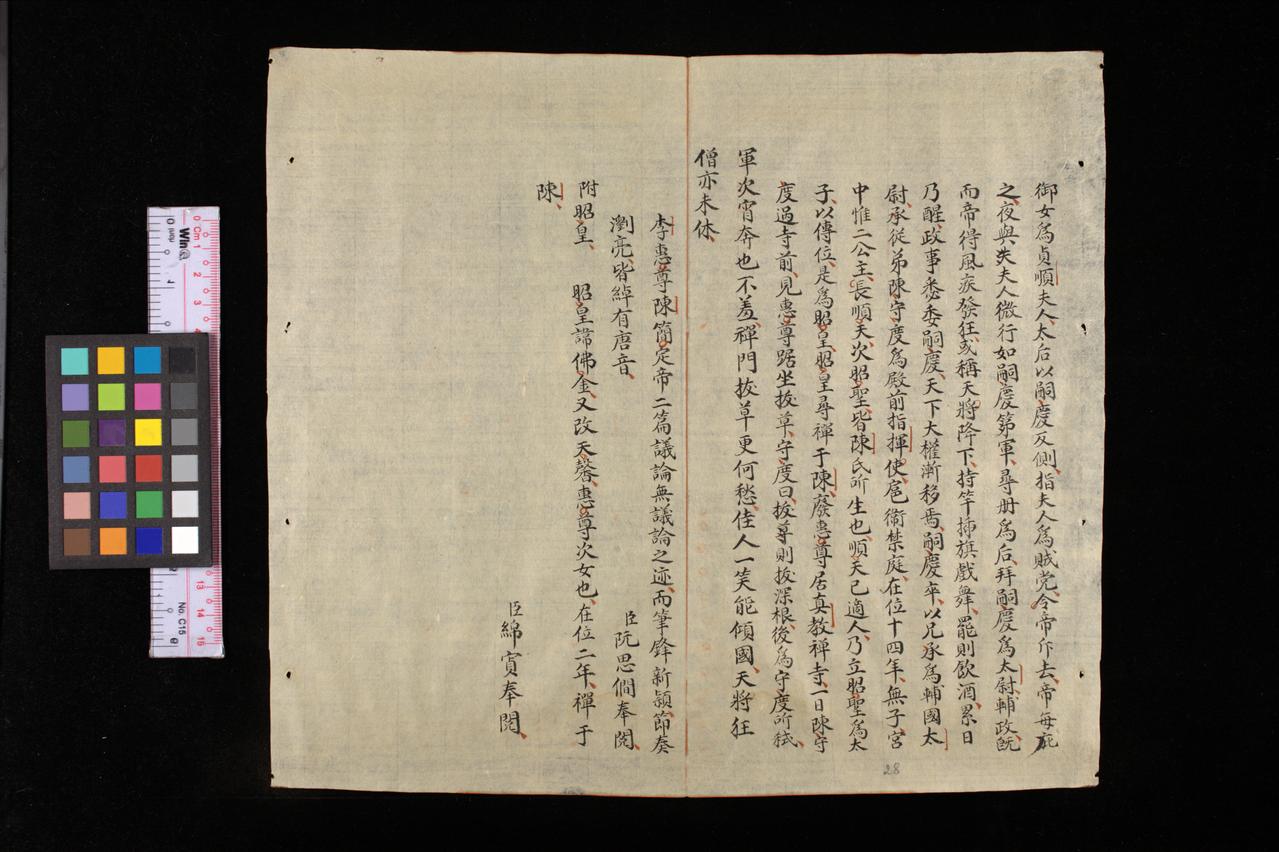 御女爲貞順夫人太后以嗣慶反側指夫人爲賊党令帝斥去帝每庇
之夜與夫人微行如嗣慶第軍尋册爲后拜嗣慶爲太尉輔政旣
而帝得風疾發狂或稱天將降下持竿揷旗戲舞罷則飲酒累日
乃醒政事悉委嗣慶天下大權漸移焉嗣慶卒以兄承爲輔國太
尉承從弟陳守度爲殿前指揮使扈衞禁庭在位十四年無子宮
中惟二公主長順天次昭聖皆陳氏所生也順天已適人乃立昭聖爲太
子以傳位是爲昭皇昭皇尋禪于陳廢惠尊居真教禪寺一日陳守
度過寺前見惠尊踞坐拔草守度曰拔草則拔深根後爲守度所弒
軍次宵奔也不羞禪門拔草更何愁佳人一笑能傾國天將狂
僧亦未休
李惠尊陳簡定帝二篇議論無議論之迹而筆鋒新頴節奏
瀏亮皆綽有唐音
臣阮思僩奉閱
附昭皇 昭皇諱佛金又改天馨惠尊次女也在位二年禪于
陳
臣綿寊奉閱
28
Cm 1 2 3 4 13 14 15
No. C15